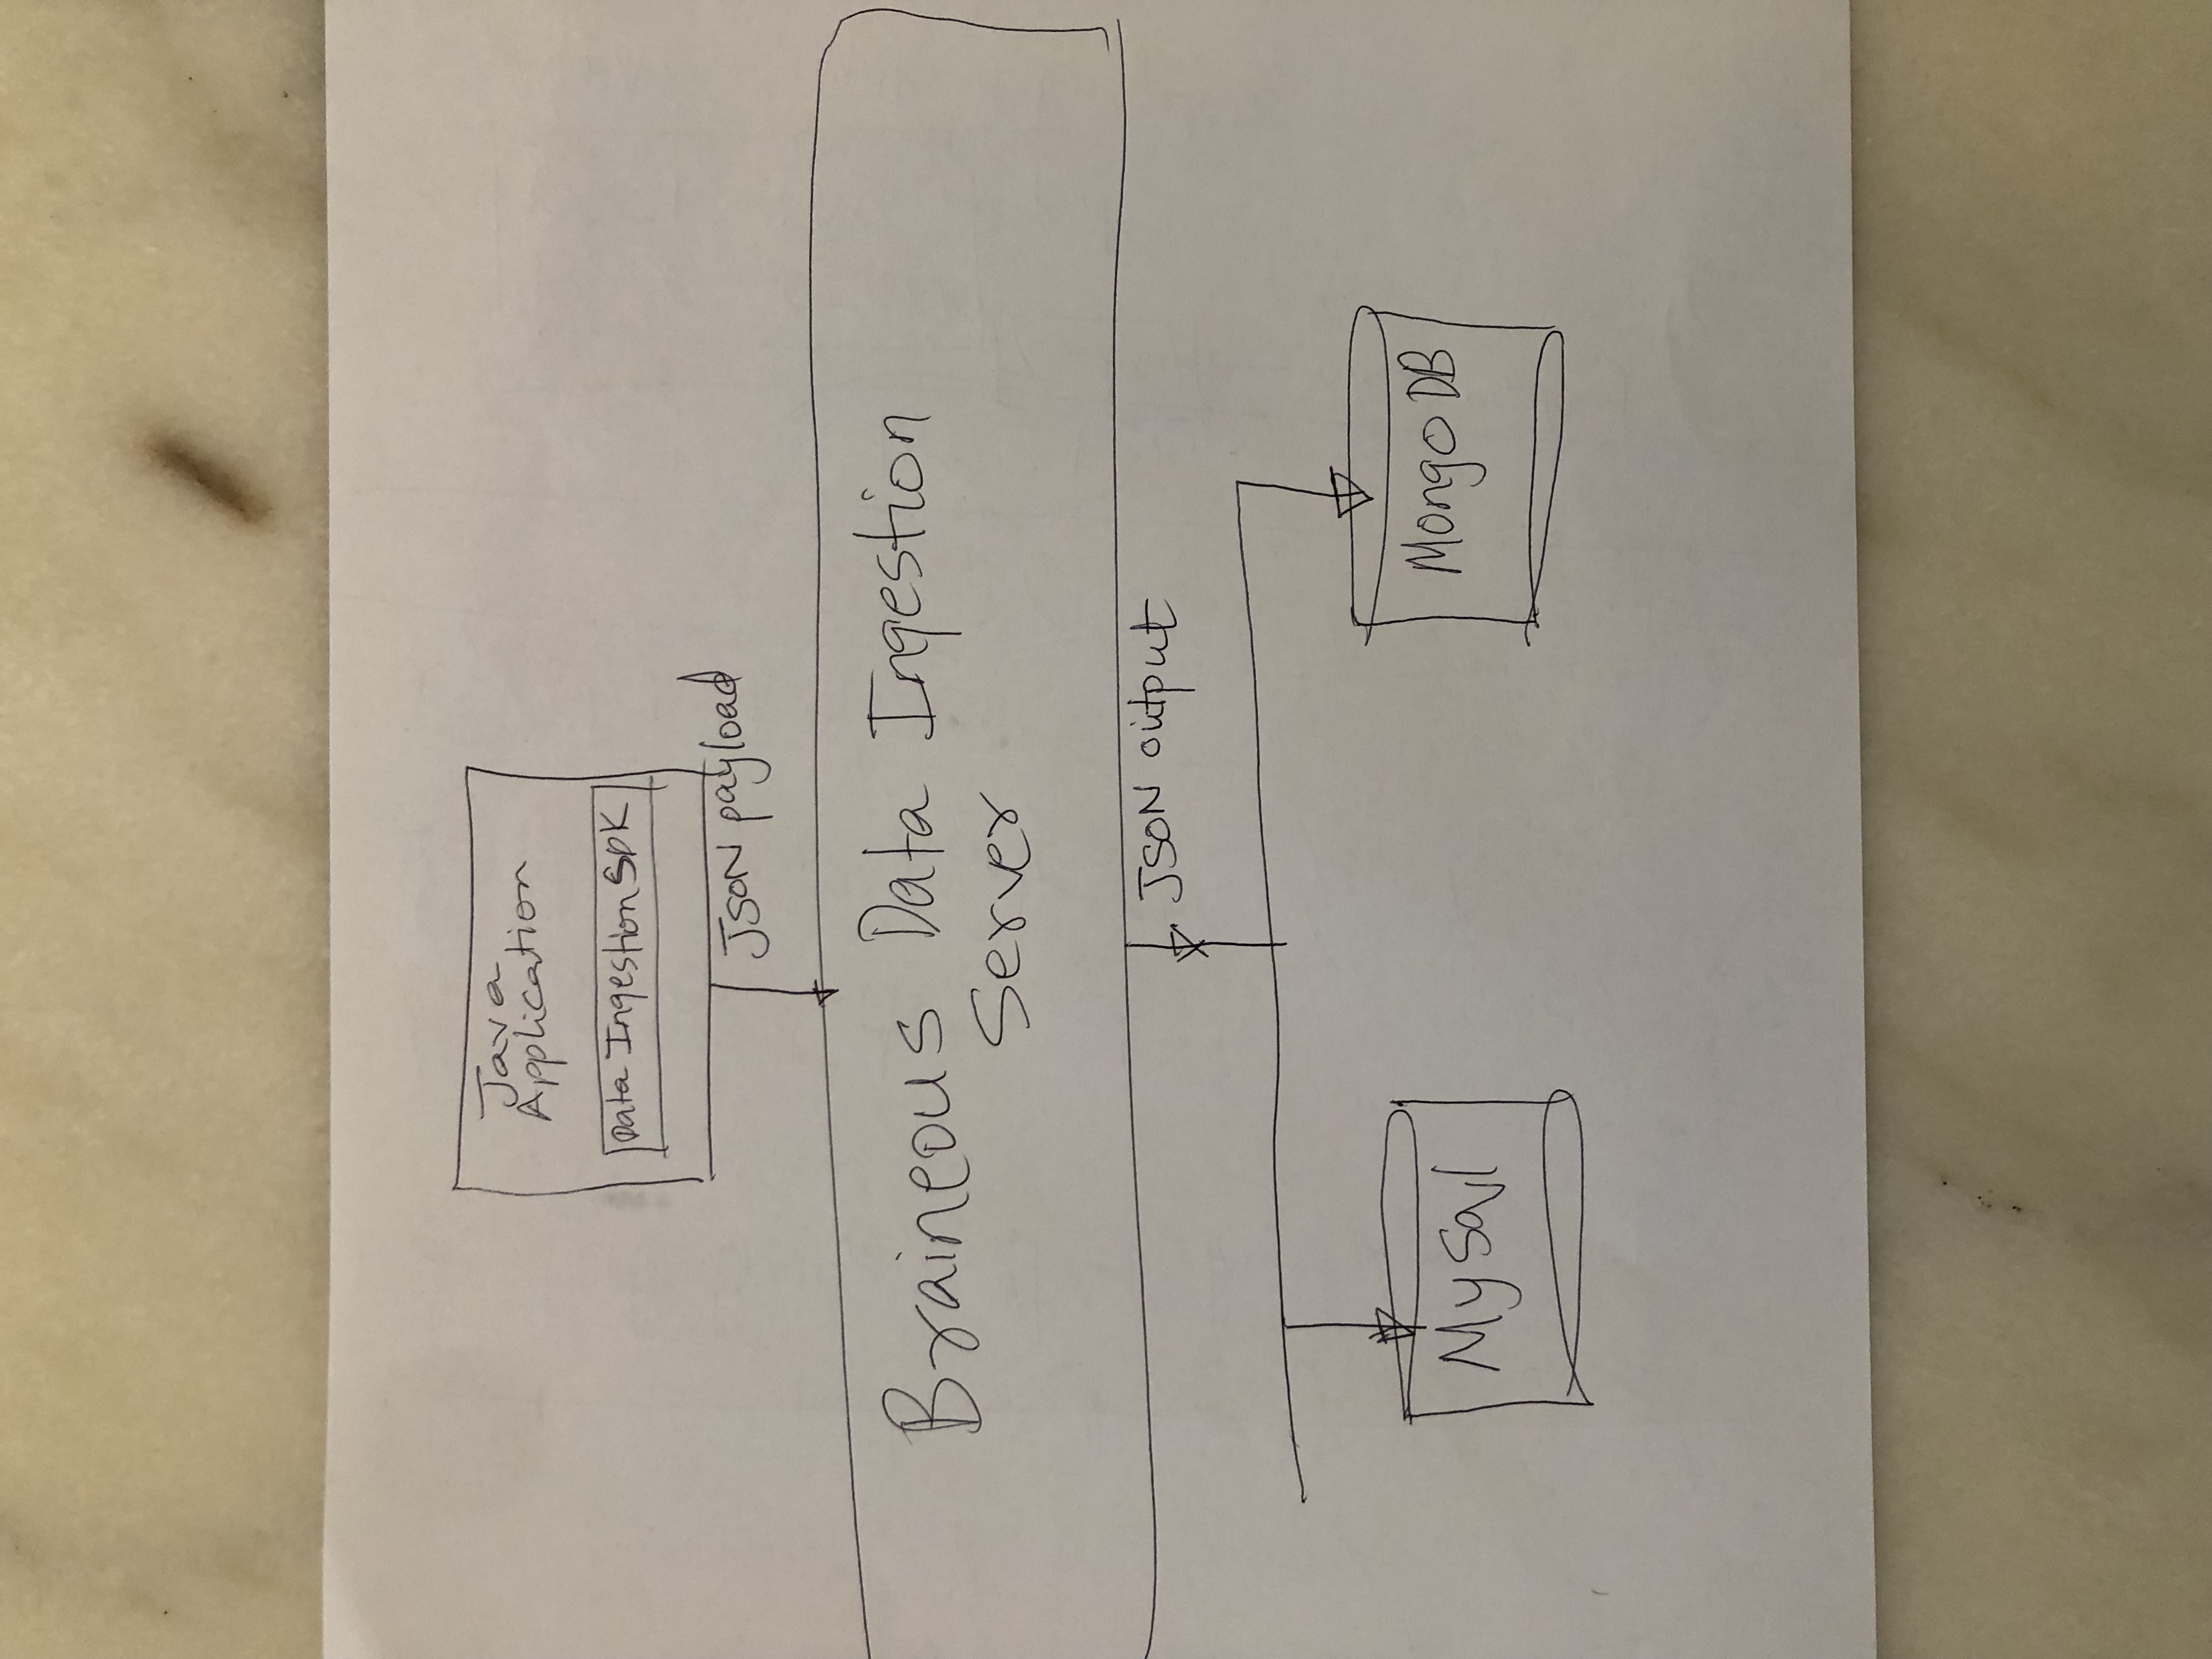 Java
Application
Data Ingestion SDK
JSON payload
Braineous Data Ingestion
Server
JSON output
MySql
Mongo DB